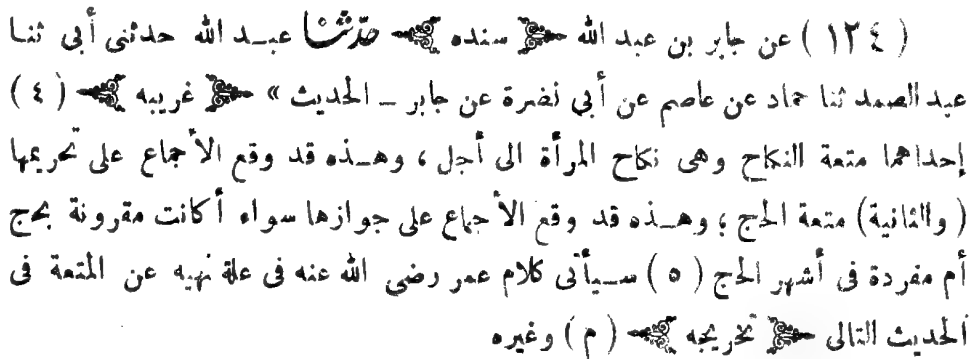 ( ١٢٤ ) عن جابر بن عبد الله ﴿ سنده ﴾ حدّثنا عبد الله حدثنى أبى ثنا
عبد الصمد ثنا حماد عن عاصم عن أبي نضرة عن جابر – الحديث » ﴿ غريبه ﴾ ( ٤ )
إحداهما متعة النكاح وهى نكاح المرأة الى أجل ، وهذه قد وقع الأجماع على تحريمها
( والثانية ) متعة الحج ؛ وهذه قد وقع الأجماع على جوازها سواء أكانت مقرونة بحج
أم مفردة فى أشهر الحج ( ٥ ) سيأتى كلام عمر رضى الله عنه فى علة نهيه عن المتعة فى
الحديث التالى ﴿ تخريجه ﴾ ( م ) وغيره